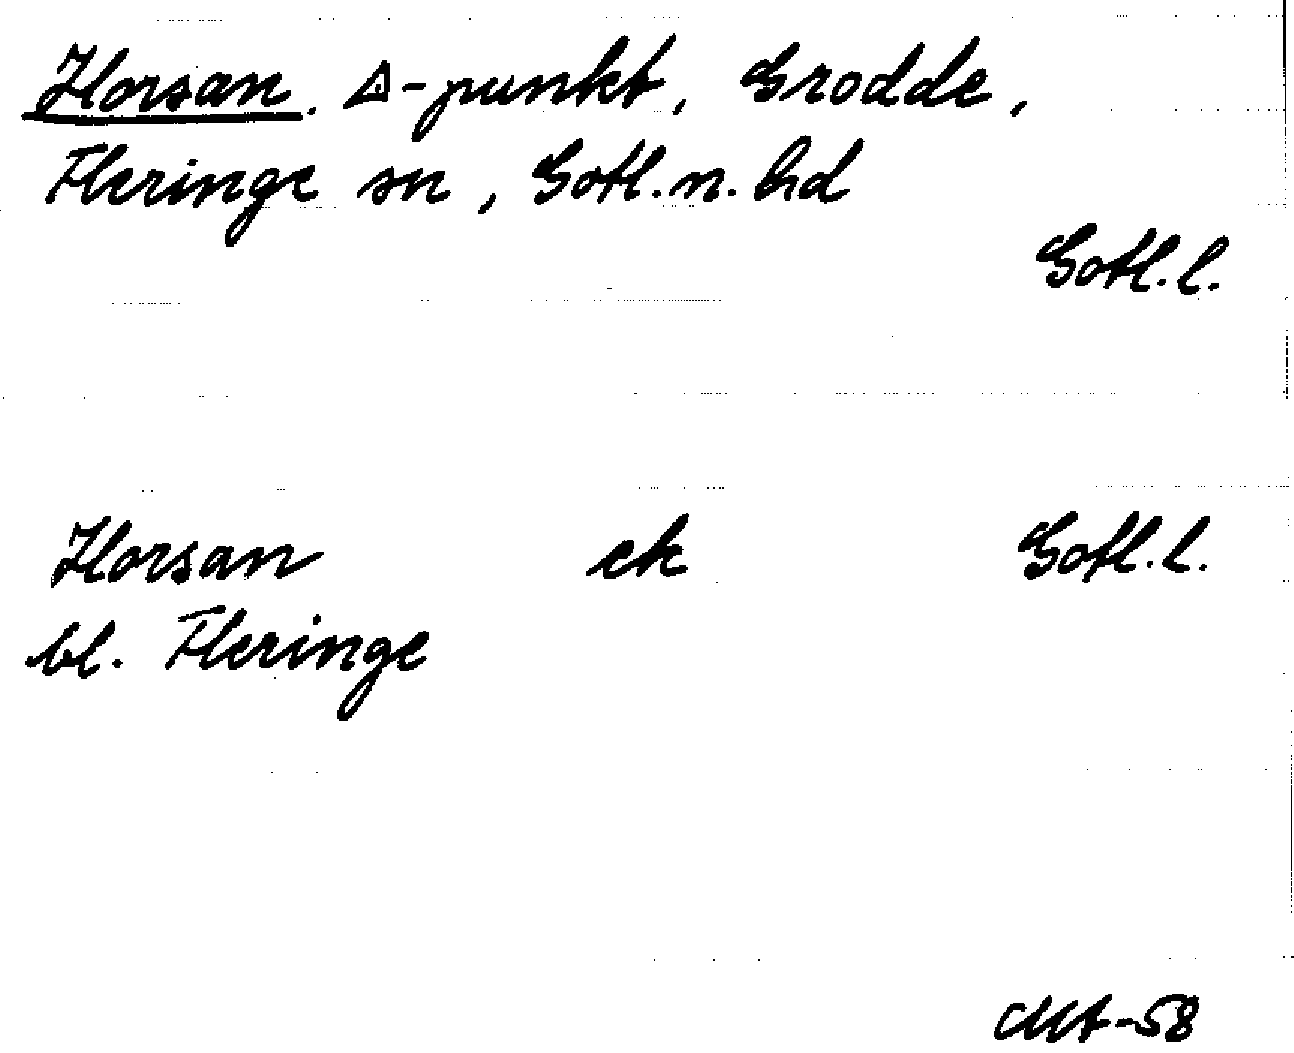 Horsan. △-punkt, Grodde,
Fleringe sn, Gotl. n. hd
Gotl. l.
Horsan ek Gotl. l.
bl. Fleringe
MA-58